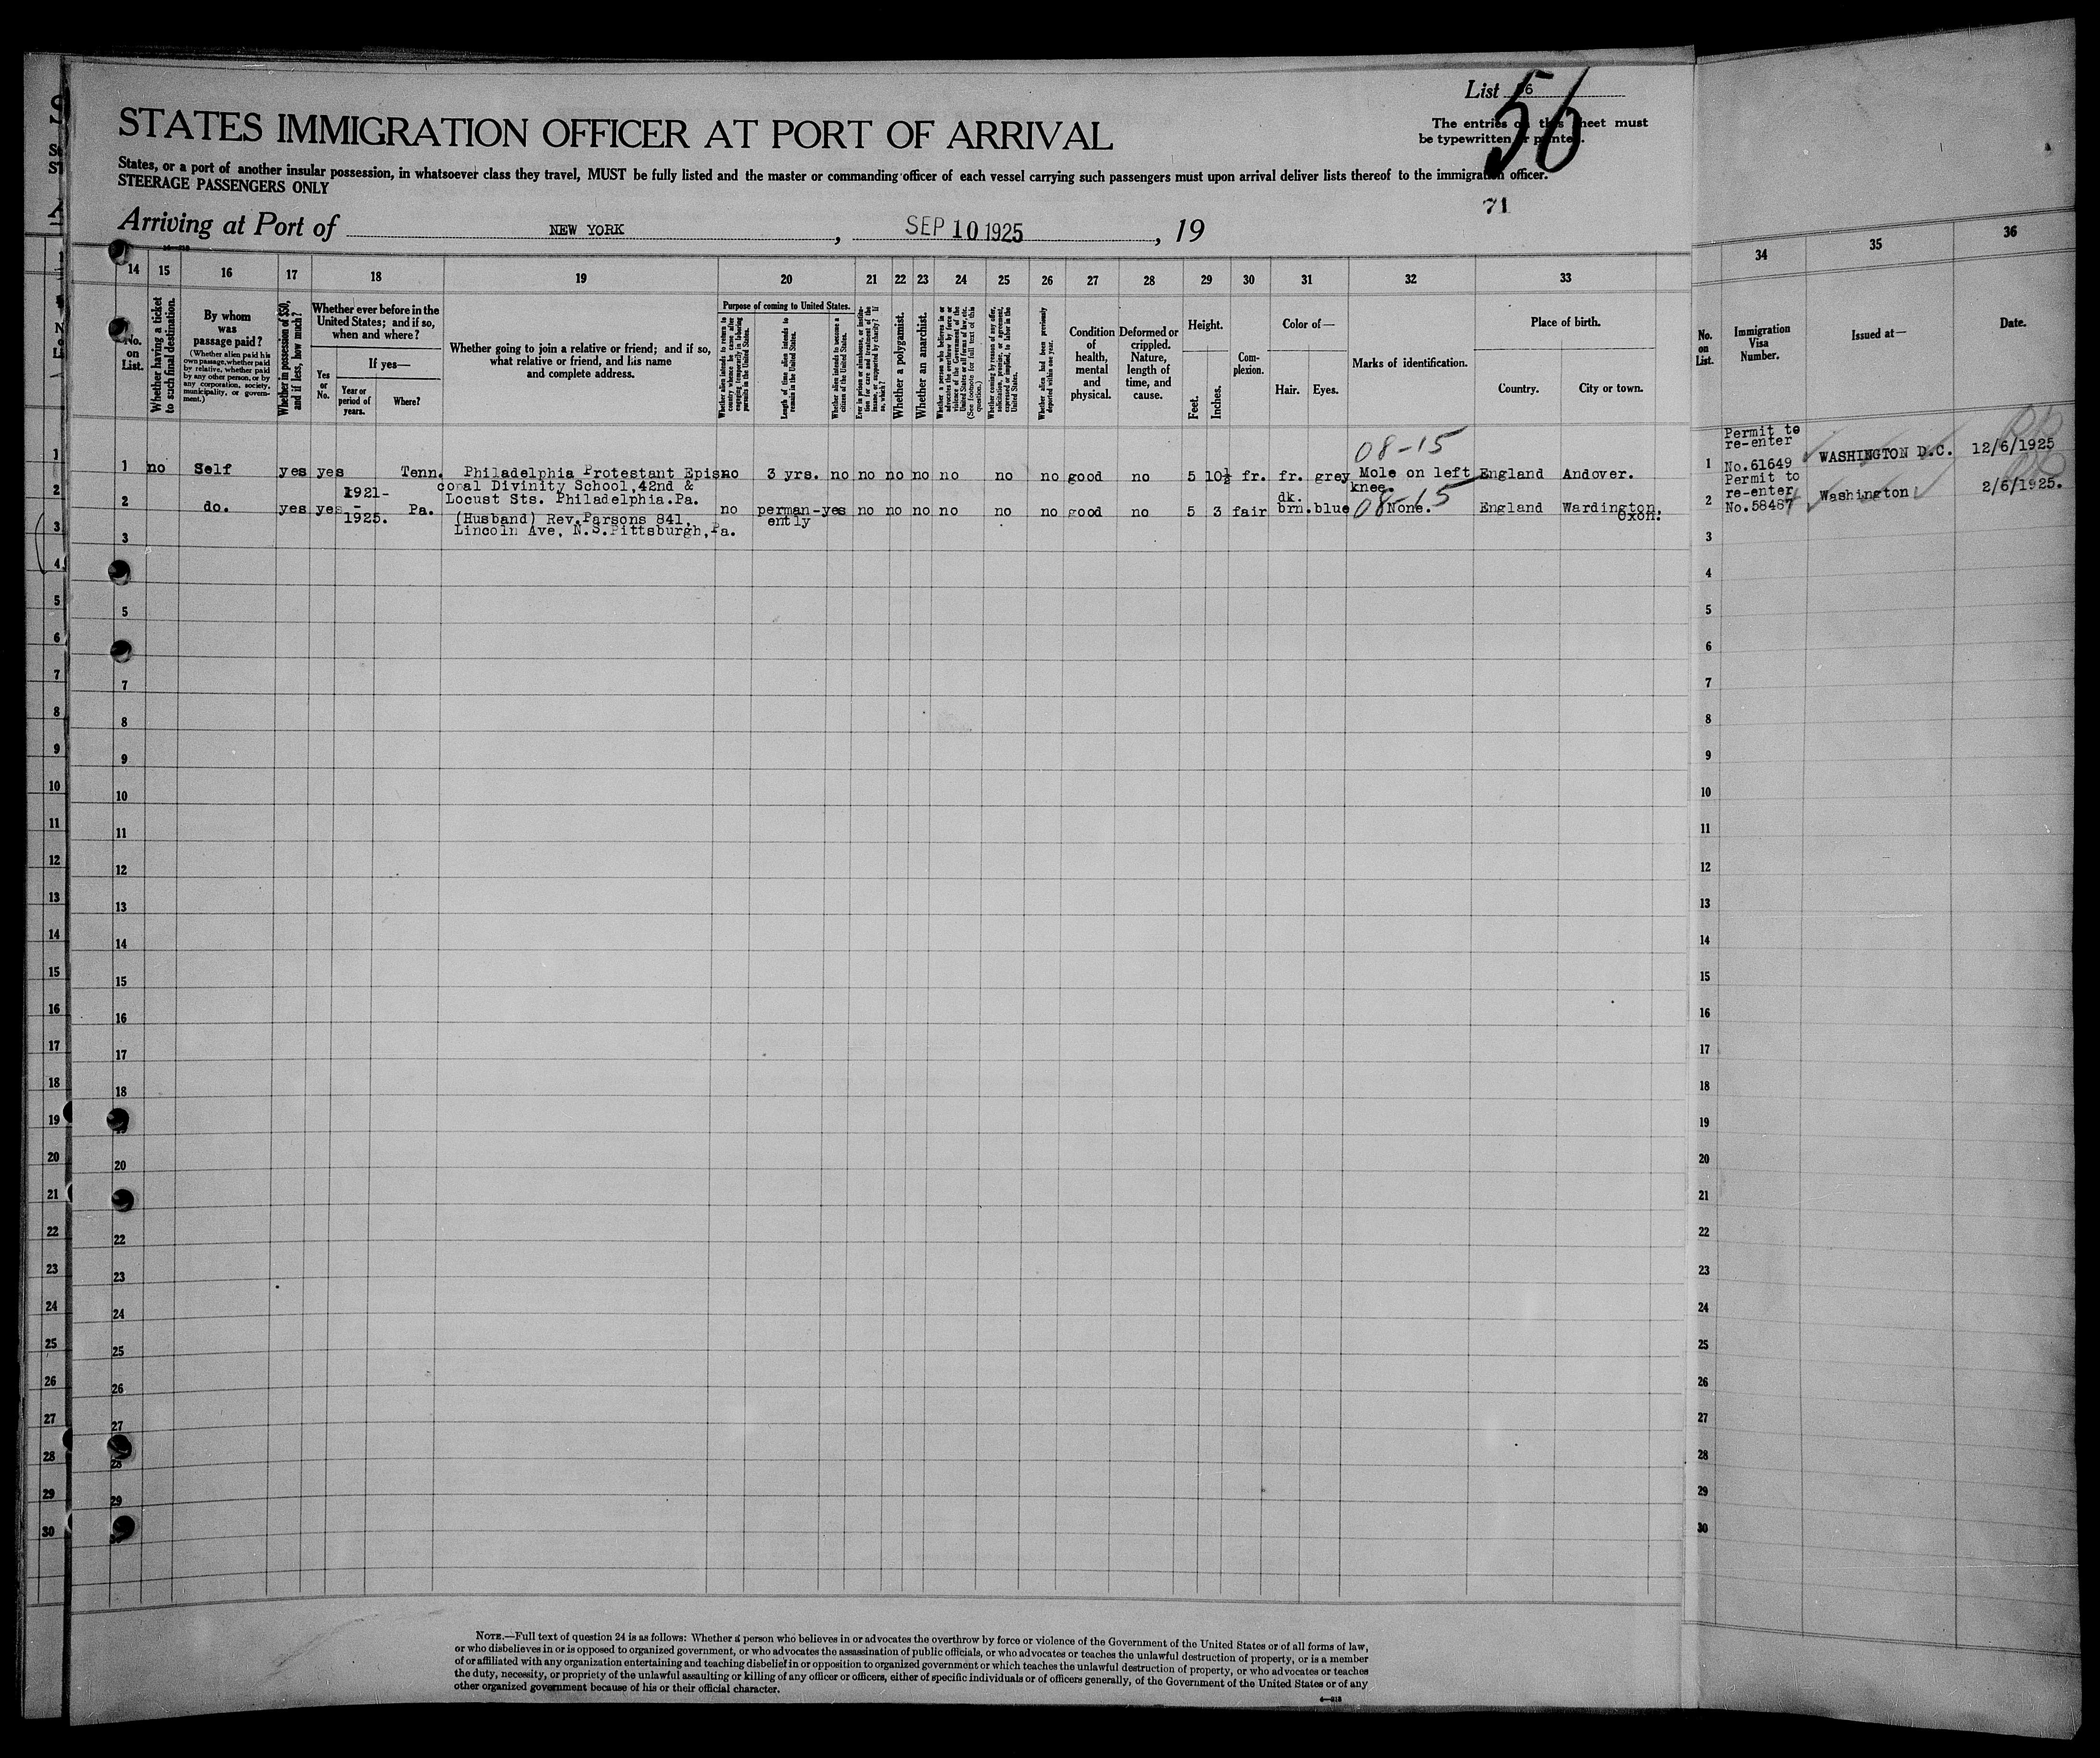 List 56
56
The entries on this sheet must
be typewritten or printed.
STATES IMMIGRATION OFFICER AT PORT OF ARRIVAL
States, or a port of another insular possession, in whatsoever class they travel, MUST be fully listed and the master or commanding officer of each vessel carrying such passengers must upon arrival deliver lists thereof to the immigration officer.
STEERAGE PASSENGERS ONLY
71
Arriving at Port of NEW YORK, SEP 10 1925, 19
14 15 16 17 18 19 20 21 22 23 24 25 26 27 28 29 30 31 32 33 34 35 36
No. on List.
Whether having a ticket to such final destination.
By whom was passage paid?
(Whether alien paid his own passage, whether paid by relative, whether paid by any other person, or by any corporation, society, municipality, or government.)
Whether in possession of $50, and if less, how much?
Whether ever before in the United States; and if so, when and where?
Yes or No.
If yes—
Year or period of years.
Where?
Whether going to join a relative or friend; and if so, what relative or friend, and his name and complete address.
Purpose of coming to United States.
Whether alien intends to return to country whence he came after engaging temporarily in laboring pursuits in the United States.
Length of time alien intends to remain in the United States.
Whether alien intends to become a citizen of the United States.
Ever in prison or almshouse, or institution for care and treatment of the insane, or supported by charity? If so, which?
Whether a polygamist.
Whether an anarchist.
Whether coming by reason of any offer, solicitation, promise, or agreement, expressed or implied, to labor in the United States.
Whether alien had been previously deported within one year.
Condition of health, mental and physical.
Deformed or crippled. Nature, length of time, and cause.
Height.
Feet.
Inches.
Complexion.
Color of—
Hair.
Eyes.
Marks of identification.
Place of birth.
Country.
City or town.
No. on List.
Immigration Visa Number.
Issued at—
Date.
08-15
1 no Self yes yes Tenn. Philadelphia Protestant Epis- no 3 yrs. no no no no no no no good no 5 10½ fr. fr. grey Mole on left England Andover.
knee.
copal Divinity School, 42nd &
Locust Sts. Philadelphia.Pa.
1 Permit to re-enter No.61649 WASHINGTON D.C. 12/6/1925
08-15
2 do. yes yes 1921-1925. Pa. (Husband) Rev.Parsons 841, no perman-ently yes no no no no no no good no 5 3 fair dk. brn. blue None. England Wardington, Oxon.
Lincoln Ave, N.S.Pittsburgh, Pa.
2 Permit to re-enter No.58487 Washington 2/6/1925.
3
4
5
6
7
8
9
10
11
12
13
14
15
16
17
18
19
20
21
22
23
24
25
26
27
28
29
30
NOTE.—Full text of question 24 is as follows: Whether a person who believes in or advocates the overthrow by force or violence of the Government of the United States or of all forms of law,
or who disbelieves in or is opposed to organized government, or who advocates the assassination of public officials, or who advocates or teaches the unlawful destruction of property, or is a member
of or affiliated with any organization entertaining and teaching disbelief in or opposition to organized government or which teaches the unlawful destruction of property, or who advocates or teaches
the duty, necessity, or propriety of the unlawful assaulting or killing of any officer or officers, either of specific individuals or of officers generally, of the Government of the United States or of any
other organized government because of his or their official character.